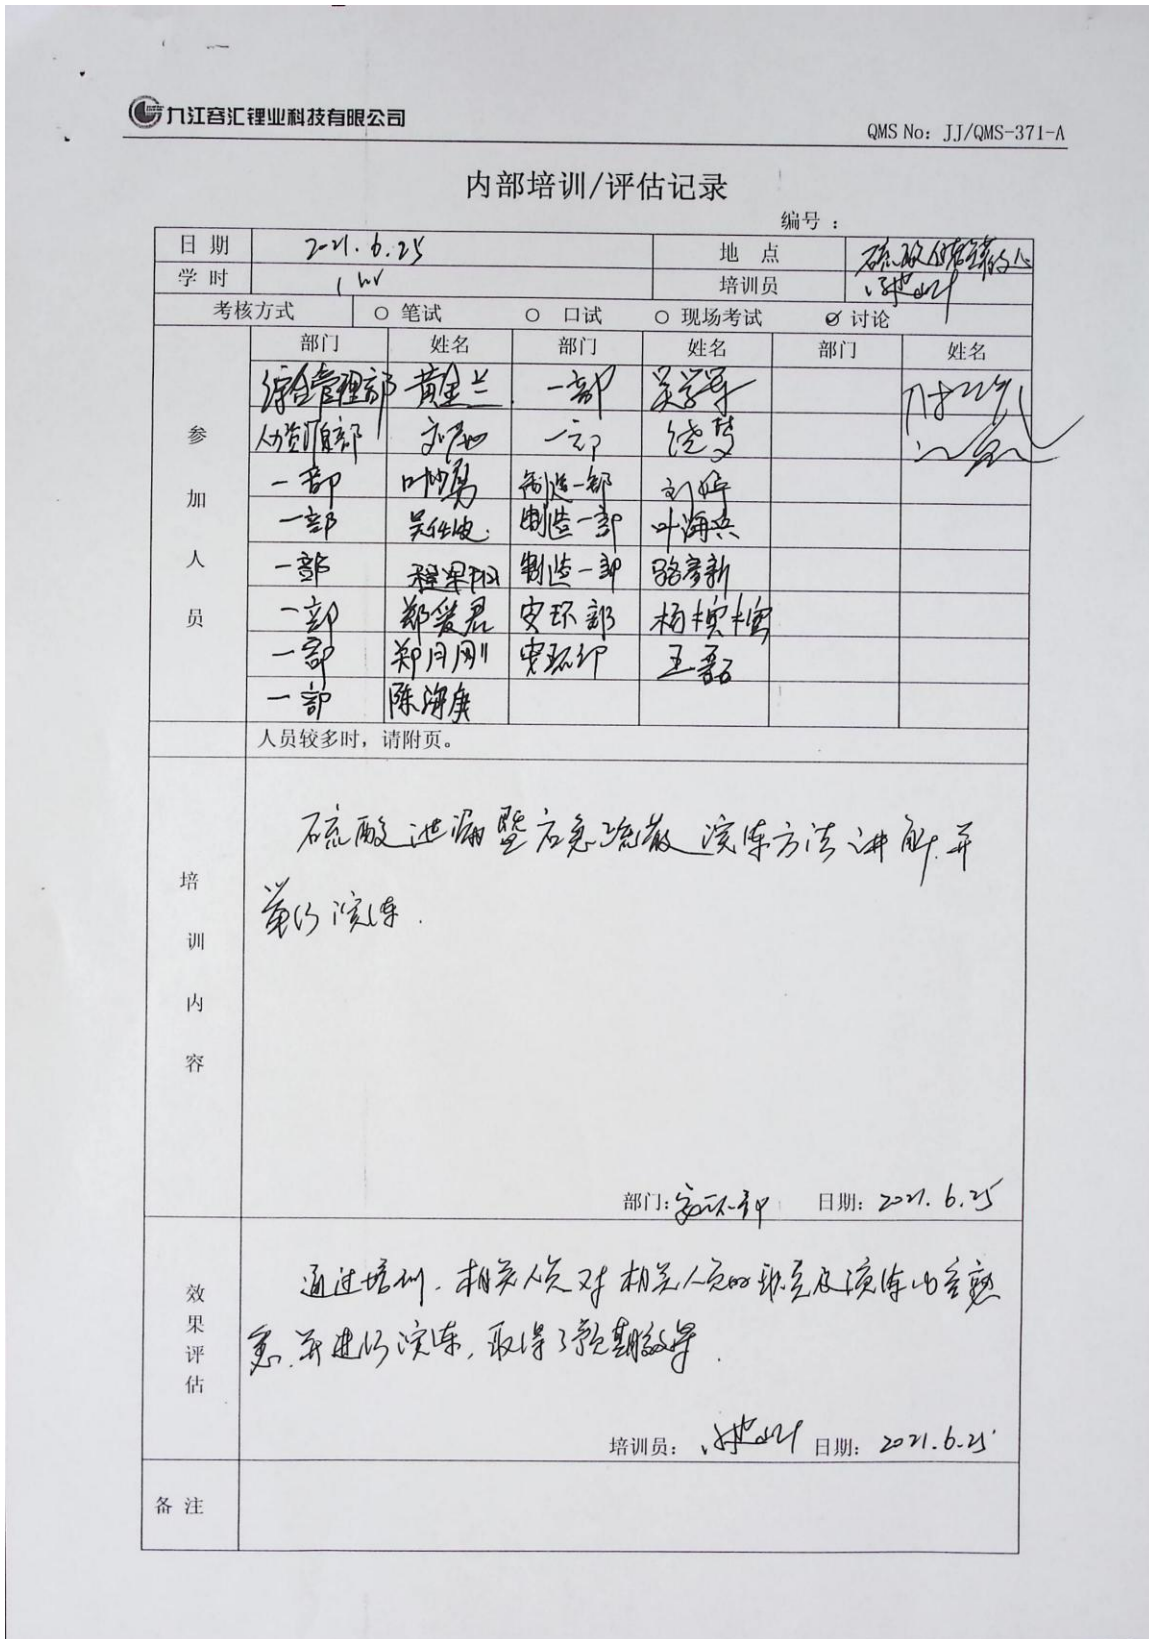 九江容汇锂业科技有限公司
QMS No: JJ/QMS-371-A
内部培训/评估记录
编号：
日期 2021.6.25 地点 硫酸
学时 1 hr 培训员
考核方式 ○ 笔试 ○ 口试 ○ 现场考试 讨论
参加人员
部门 姓名 部门 姓名 部门 姓名
综合管理部 黄金兰 一部 吴学军
人力资源部 一部 饶梦
一部 叶少勇 制造一部 刘婷
一部 吴任波 制造一部 叶海兵
一部 程梁阳 制造一部 骆彦新
一部 郑爱君 安环部 杨樉樉
一部 郑月刚 安环部 王磊
一部 陈海庚
人员较多时，请附页。
培训内容
硫酸泄漏暨应急疏散演练方法讲解.并
举行演练.
部门:安环部 日期: 2021.6.25
效果评估
通过培训.相关人员对相关人员的职责及演练内容熟
悉.并进行演练,取得了预期效果.
培训员: 日期: 2021.6.25
备注